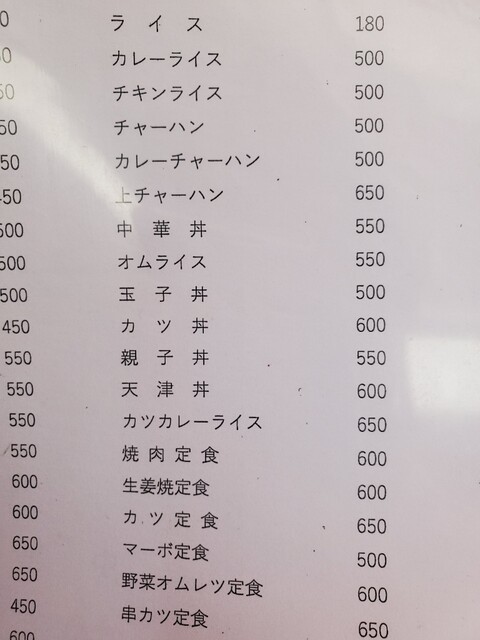 0 ライス 180
50 カレーライス 500
50 チキンライス 500
50 チャーハン 500
50 カレーチャーハン 500
450 上チャーハン 650
500 中華丼 550
500 オムライス 550
500 玉子丼 500
450 カツ丼 600
550 親子丼 550
550 天津丼 600
550 カツカレーライス 650
550 焼肉定食 600
600 生姜焼定食 600
600 カツ定食 650
650 マーボ定食 500
650 野菜オムレツ定食 600
450 串カツ定食 650
600